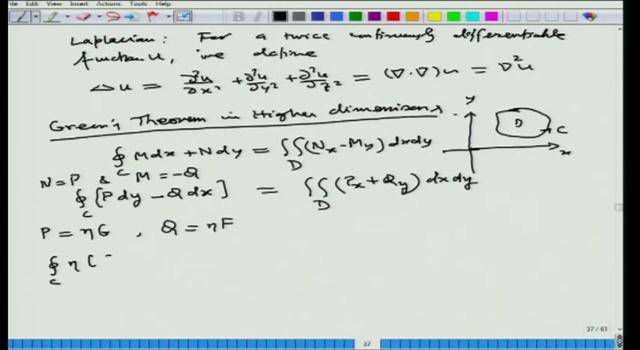 Insert Actions Tools Help
Laplacian: For a twice continuously differentiable
function u, we define
△u = ∂²u/∂x² + ∂²u/∂y² + ∂²u/∂z² = (∇·∇)u = ∇²u
Green's Theorem in Higher dimensions
∮_C Mdx + Ndy = ∬_D (N_x - M_y) dxdy
y D C x
N = P & M = -Q
∮_C [P dy - Q dx] = ∬_D (P_x + Q_y) dx dy
P = ηG , Q = ηF
∮_C η [ -
37 / 61
37